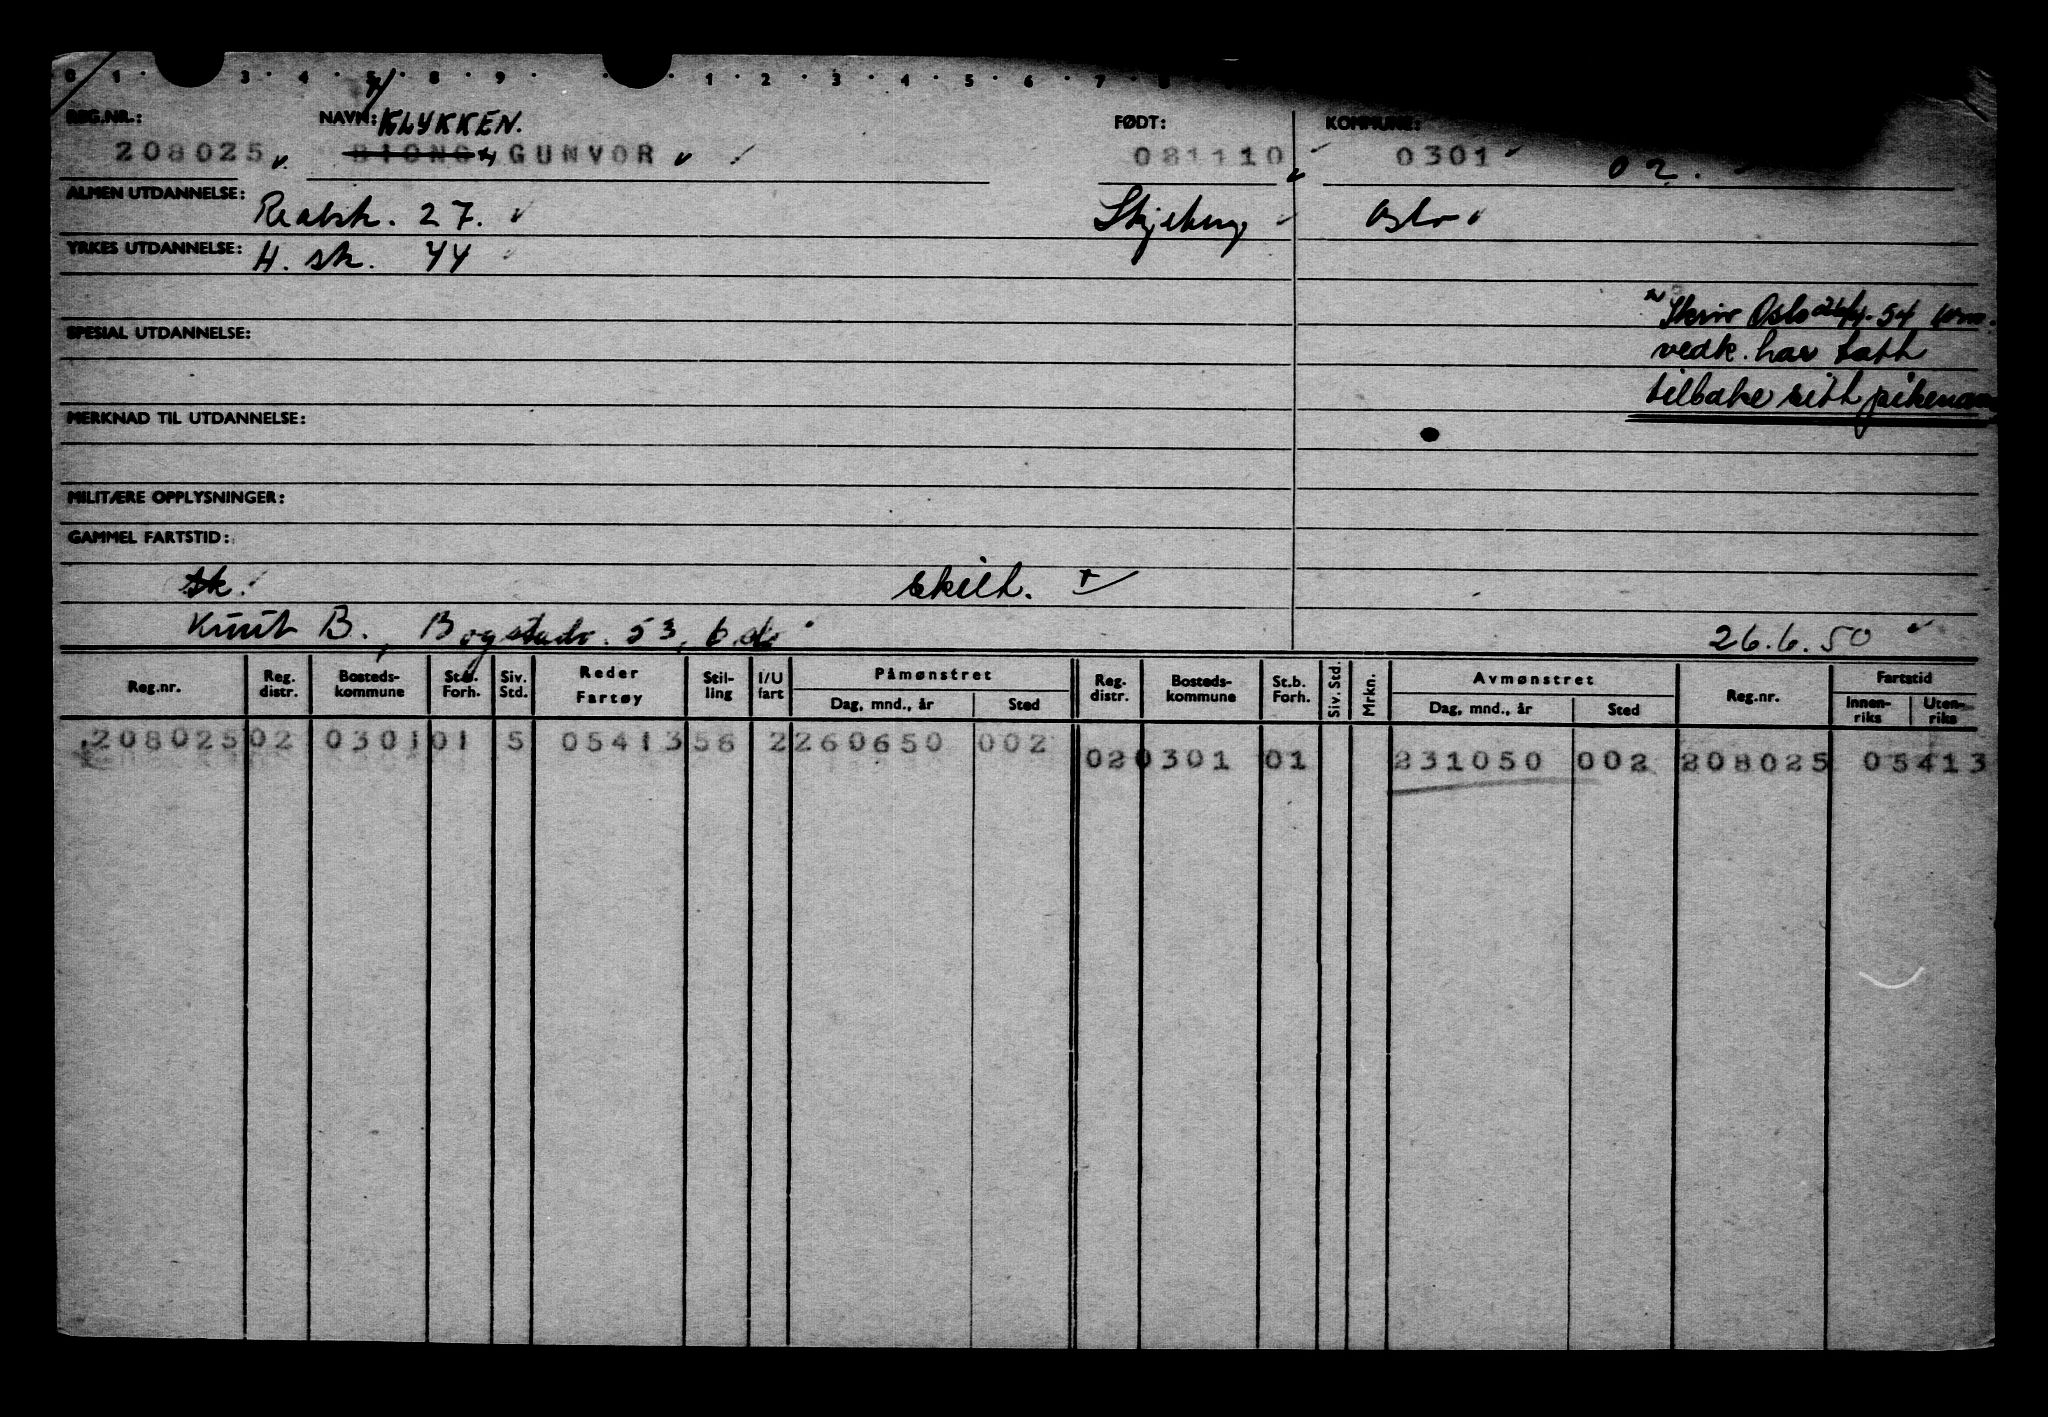 0 1 · 3 · 4 · 5 · 8 · 9 · · · 1 · 2 · 3 · 4 · 5 · 6 · 7 · 8
REG.NR.: NAVN: KLYKKEN. FØDT: KOMMUNE:
208025 BIONG GUNVOR 081110 0301 02.
ALMEN UTDANNELSE: Realsk. 27. Skjeberg Oslo
YRKES UTDANNELSE: H. sk. 44
Skriv Oslo 54
SPESIAL UTDANNELSE:
vedk. har tatt
tilbake sitt pikenavn
MERKNAD TIL UTDANNELSE:
MILITÆRE OPPLYSNINGER:
GAMMEL FARTSTID:
sk. skilt. +
Knut B., Bogstadv. 53, b. do 26.6.50
Reg.nr. Reg. distr. Bosteds-kommune St.b. Forh. Siv. Std. Reder Fartøy Stil-ling I/U fart Påmønstret Dag, mnd., år Sted Reg. distr. Bosteds-kommune St.b. Forh. Siv. Std. Mrkn. Avmønstret Dag, mnd., år Sted Reg.nr. Fartstid Innen-riks Uten-riks
208025 02 0301 01 5 05413 56 2 260650 002
02 0301 01 231050 002 208025 05413